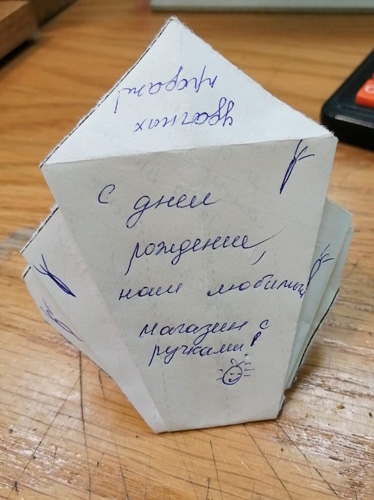 удачных
продаж!
С днем
рождения,
наш любимый
магазин с
ручками!